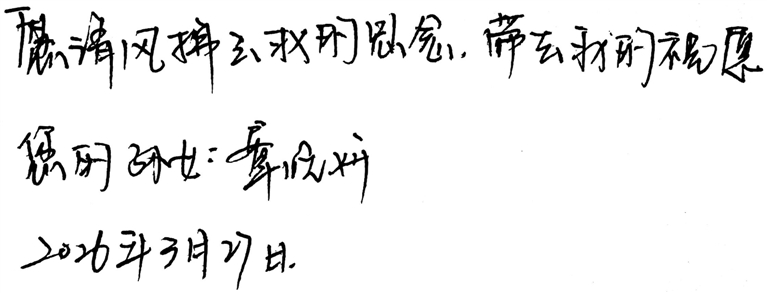 愿清风捎去我的思念，带去我的祝愿
您的孙女：
2026年3月27日.